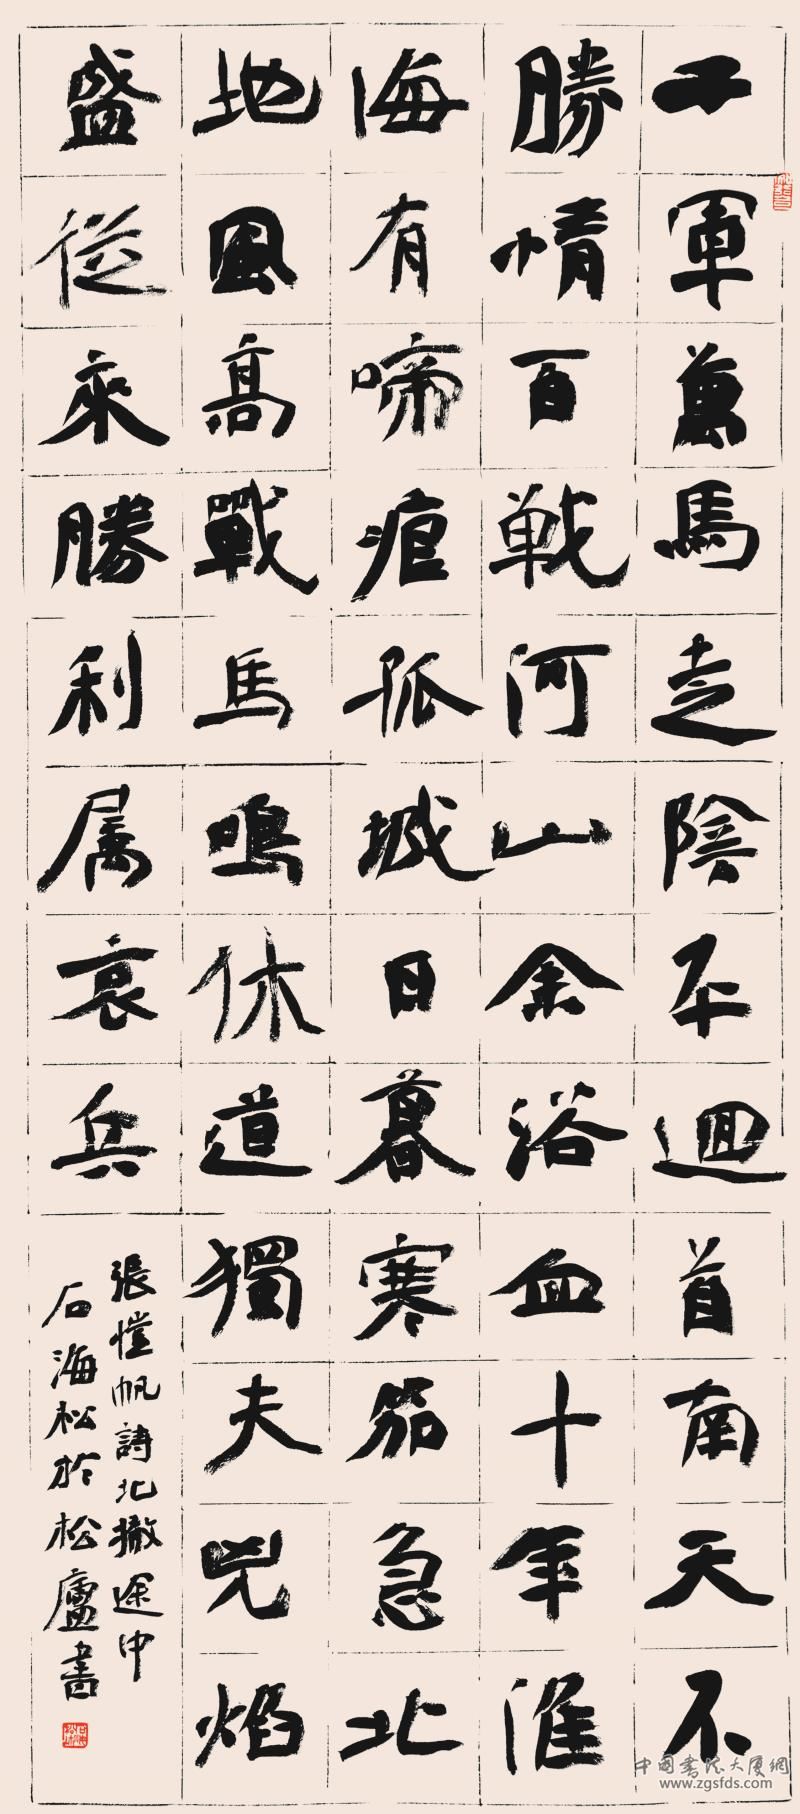 千軍萬馬走陰平迴首南天不
勝情百戦河山余浴血十年淮
海有啼痕孤城日暮寒笳急北
地風高戰馬鳴休道獨夫兇焰
盛從來勝利属哀兵
張愷帆詩北撤途中
石海松於松廬書
中國書法大廈網
www.zgsfds.com